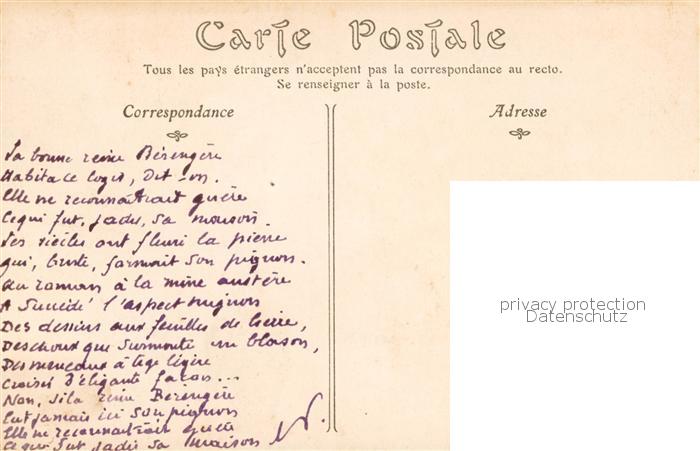 Carte Postale
Tous les pays étrangers n'acceptent pas la correspondance au recto.
Se renseigner à la poste.
Correspondance
Adresse
La bonne reine Bérengère
Habita ce logis, Dit-on.
Elle ne reconnaîtrait guère
Ce qui fut, jadis, sa maison.
Les siècles ont fleuri la pierre
qui, brute, formait son pignon.
Au roman à la mine austère
A succédé l'aspect mignon
Des dessins aux feuilles de lierre,
Des choux que surmonte un blason,
Des meneaux à tige légère
Croisés d'élégante façon...
Non, si la reine Bérengère
Eut jamais ici son pignon
Elle ne reconnaîtrait guère
Ce qui fut jadis sa maison
privacy protection
Datenschutz